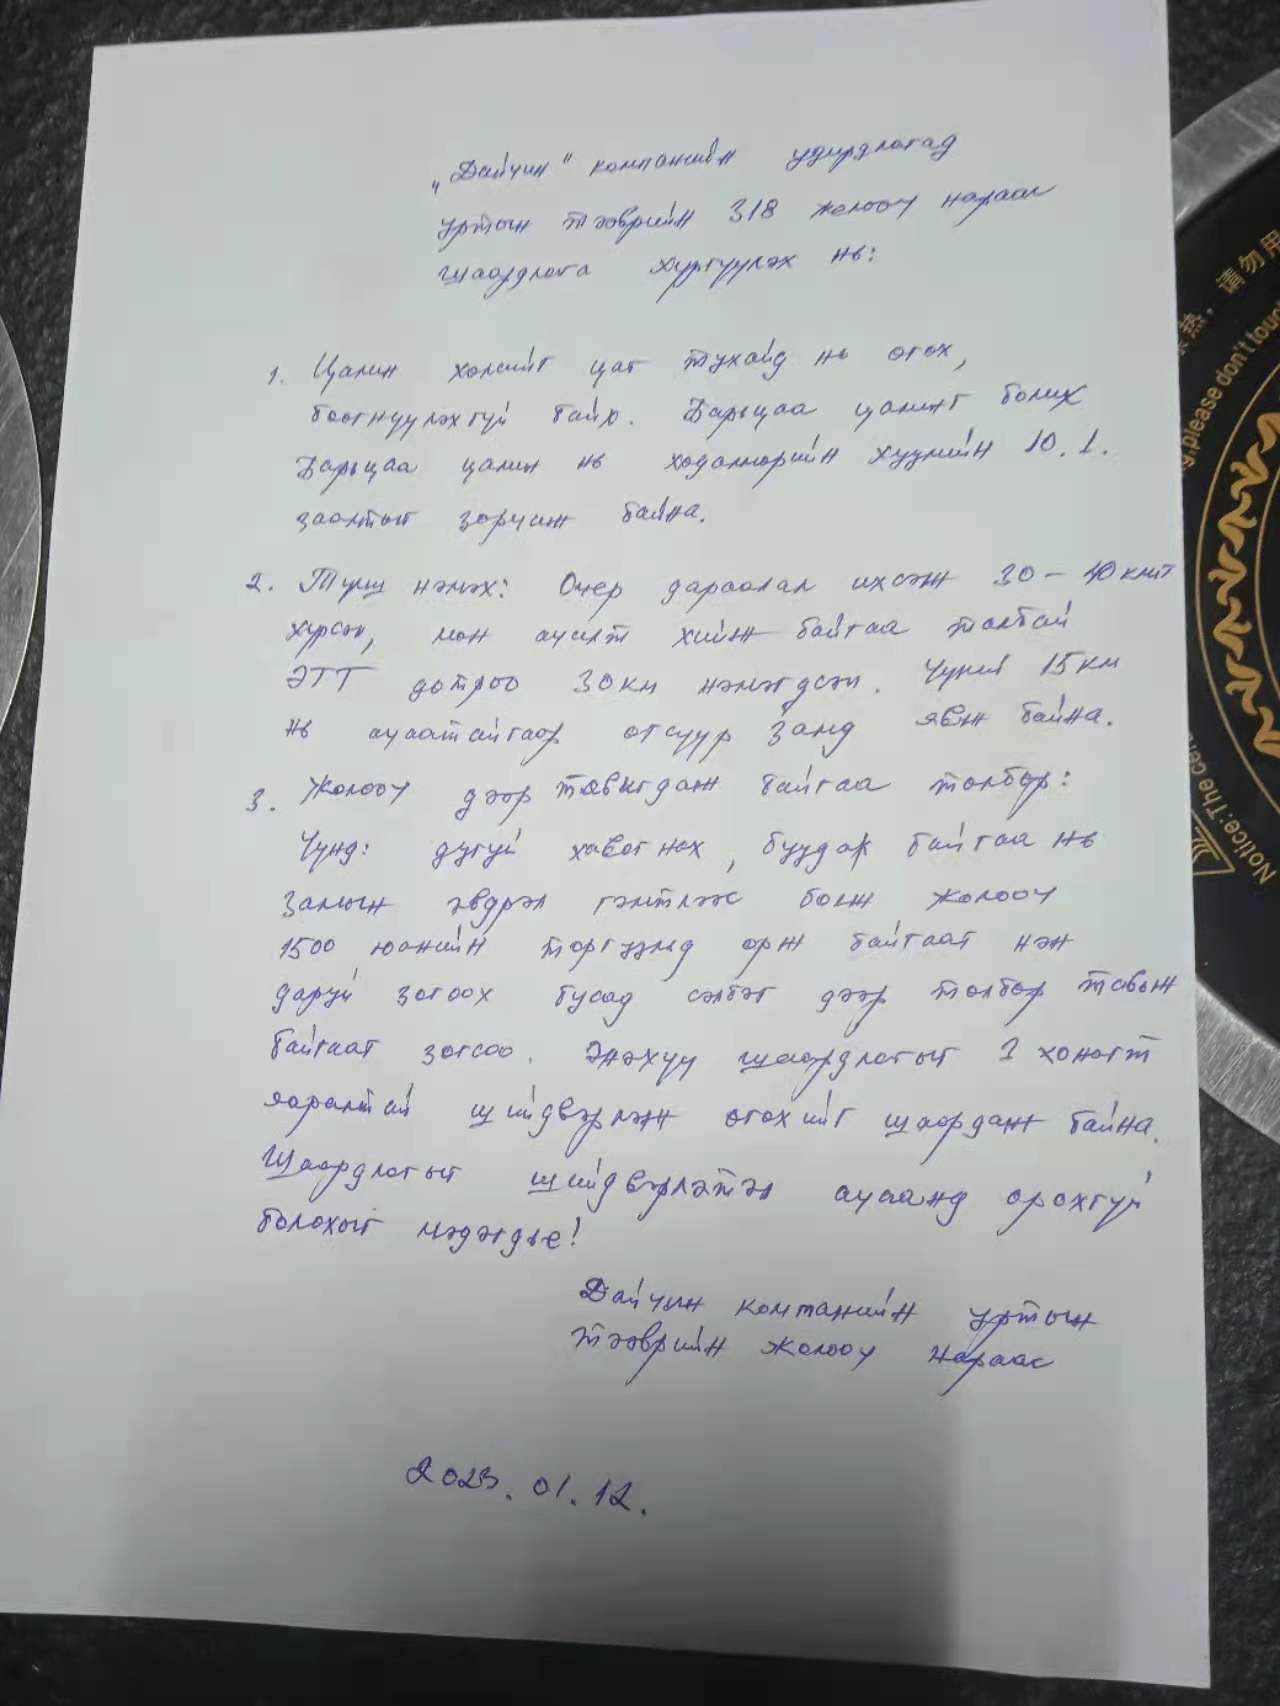 „Дайчин" компанийн удирдлагад
уртын тээврийн 318 жолооч нараас
шаардлага хүргүүлэх нь:
1. Цалин хөлсийг цаг тухайд нь өгөх,
боогнуулахгүй байх. Барьцаа цалинг болих
Барьцаа цалин нь хөдөлмөрийн хуулийн 10.1.
заалтыг зөрчиж байна.
2. Түлш нэмэх: Очер дараалал ихсэж 30-40 кмт
хүрсэн, мөн ачилт хийж байгаа талбай
ЭТТ дотроо 30км нэмэгдсэн. Үүний 15км
нь ачаатайгаар өгсүүр замд явж байна.
3. Жолооч дээр тавигдаж байгаа төлбөр:
Үүнд: дугуй хавагнах, буудах байгаа нь
замын эвдрэл гэмтлээс болж жолооч
1500 юанийн торгуульд орж байгааг нэн
даруй зогоох бусад сэлбэг дээр төлбөр тавьж
байгааг зогсоо. Энэхүү шаардлагыг 1 хоногт
яаралтай шийдвэрлэж өгөхийг шаардаж байна.
Шаардлагыг шийдвэрлэтэл ачаанд орохгүй
болохыг мэдэгдье!
Дайчин компанийн уртын
тээврийн жолооч нараас
2023.01.12.
请勿用
热,
please don't touch
Notice: The